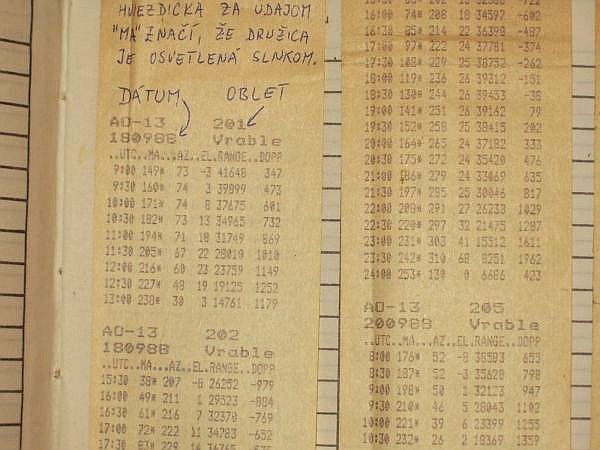 HVIEZDIČKA ZA ÚDAJOM
"MA" ZNAČÍ, ŽE DRUŽICA
JE OSVETLENÁ SLNKOM.
DÁTUM OBLET
AO-13 201
180988 Vrable
..UTC..MA...AZ..EL.RANGE..DOPP
9:00 149* 73 -3 41648 347
9:30 160* 74 3 39899 473
10:00 171* 74 8 37675 601
10:30 182* 73 13 34965 732
11:00 194* 71 18 31749 869
11:30 205* 67 22 28010 1010
12:00 216* 60 23 23759 1149
12:30 227* 48 19 19125 1252
13:00 238* 30 3 14761 1179
AO-13 202
180988 Vrable
..UTC..MA...AZ..EL.RANGE..DOPP
15:30 38* 207 -8 26252 -979
16:00 49* 211 1 29523 -884
16:30 61* 216 7 32370 -769
17:00 72* 222 11 34783 -652
17:30 83* 229
16:00 74* 208 18 34592 -602
16:30 85* 214 22 36398 -487
17:00 97* 222 24 37781 -374
17:30 108* 229 25 38752 -262
18:00 119* 236 26 39312 -151
18:30 130* 244 26 39453 -38
19:00 141* 251 26 39162 79
19:30 152* 258 25 38415 202
20:00 164* 265 24 37182 333
20:30 175* 272 24 35420 476
21:00 186* 279 24 33069 635
21:30 197* 285 25 30046 817
22:00 208* 291 27 26238 1029
22:30 220* 297 32 21475 1287
23:00 231* 303 41 15512 1611
23:30 242* 310 68 8251 1962
24:00 253* 130 0 6686 423
AO-13 205
200988 Vrable
..UTC..MA...AZ..EL.RANGE..DOPP
8:00 176* 52 -8 38593 653
8:30 187* 52 -3 35628 798
9:00 198* 50 1 32123 947
9:30 210* 46 5 28043 1102
10:00 221* 39 6 23399 1255
10:30 232* 26 2 18369 1359